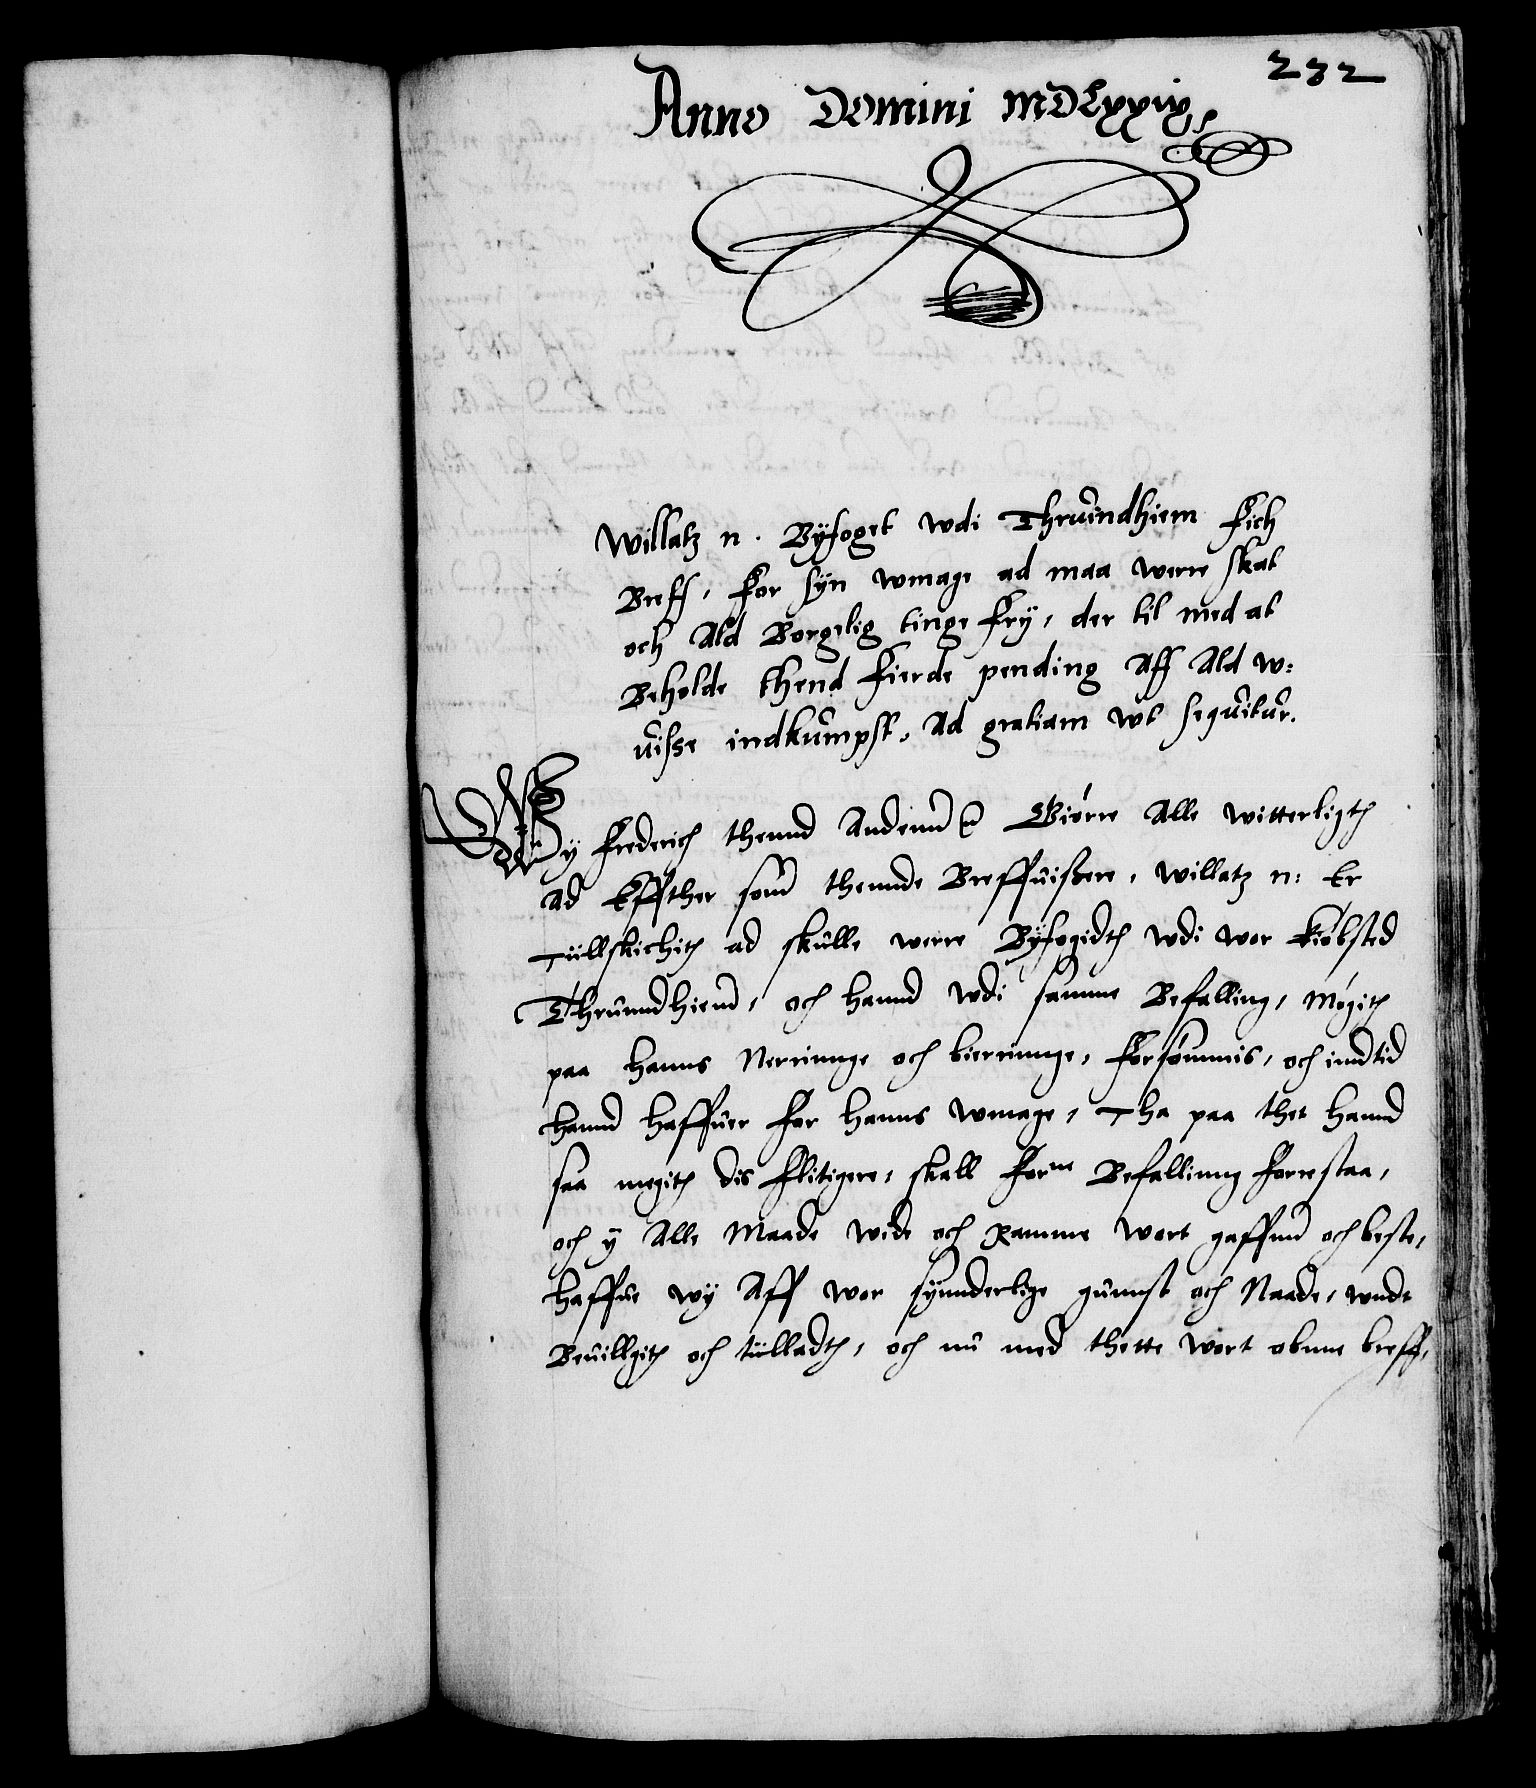 232
Anno Domini MDLxxix
Willatz n. Byfoget wdi Thrundhiem Fich
Breff, For syn wmage ad maa werre skat
och Ald Borgelig tinge Fry, der til med at
Beholde thend Fierde pending Aff Ald w=
uisse indkumpst, Ad gratiam wt sequitur.
Wy Frederich thennd Andenn Giørre Alle witterligth
Ad Effther som thennde Breffuissere, Willatz n: Er
Tillskickith ad skulle werre Byfogidth wdi wor kiøbsted
Thrunndhiem, och hannd wdi samme Befalling, Megith
paa hanns Nerringe och bierringe, Forsømmis, och inndtid
hannd haffuer For hanns wmage, Tha paa thet hannd
saa megith dis Flitigere, skall Forne Befallinng Forrestaa,
och y Alle Maade wide och Ramme wort gaffnn och beste,
haffue wy Aff wor synnderlige gunnst och Naade, wndt
Beuillgith och tilladth, och nu med thette wort obnne breff,